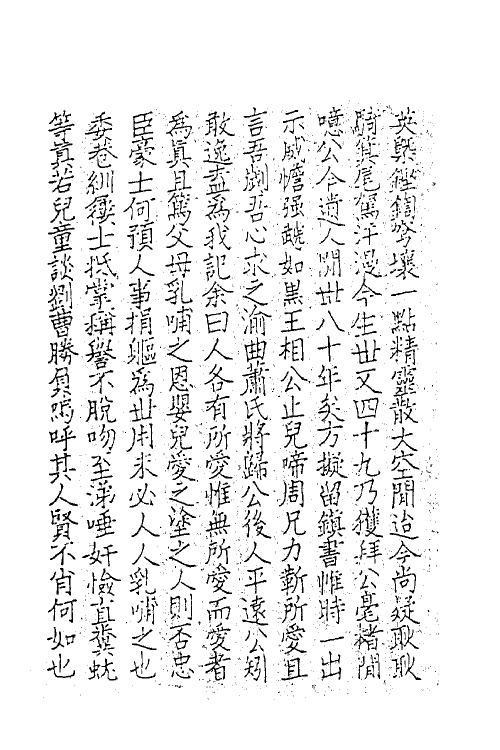 英槩鏗鍧穹壤一點精靈散大空聞迨今尚疑耿耿
騎箕尾駕汗漫今生世又四十九乃獲拜公毫楮閒
噫公今逝人閒世八十年矣方擬留鎮書帷時一出
示威憺强趬如黒王相公止兒啼周兄力靳所愛且
言吾劌吾心求之渝曲蕭氏將歸公後人平遠公矧
敢逸盍為我記余曰人各有所愛惟無所愛而愛者
為眞且篤父母乳哺之恩嬰兒愛之塗之人則否忠
臣豪士何預人事捐軀為世用未必人人乳哺之也
委巷紃縷士扺掌稱譽不脫吻至涕唾奸憸直糞蚘
等眞若兒童談劉曹勝負嗚呼其人賢不肖何如也